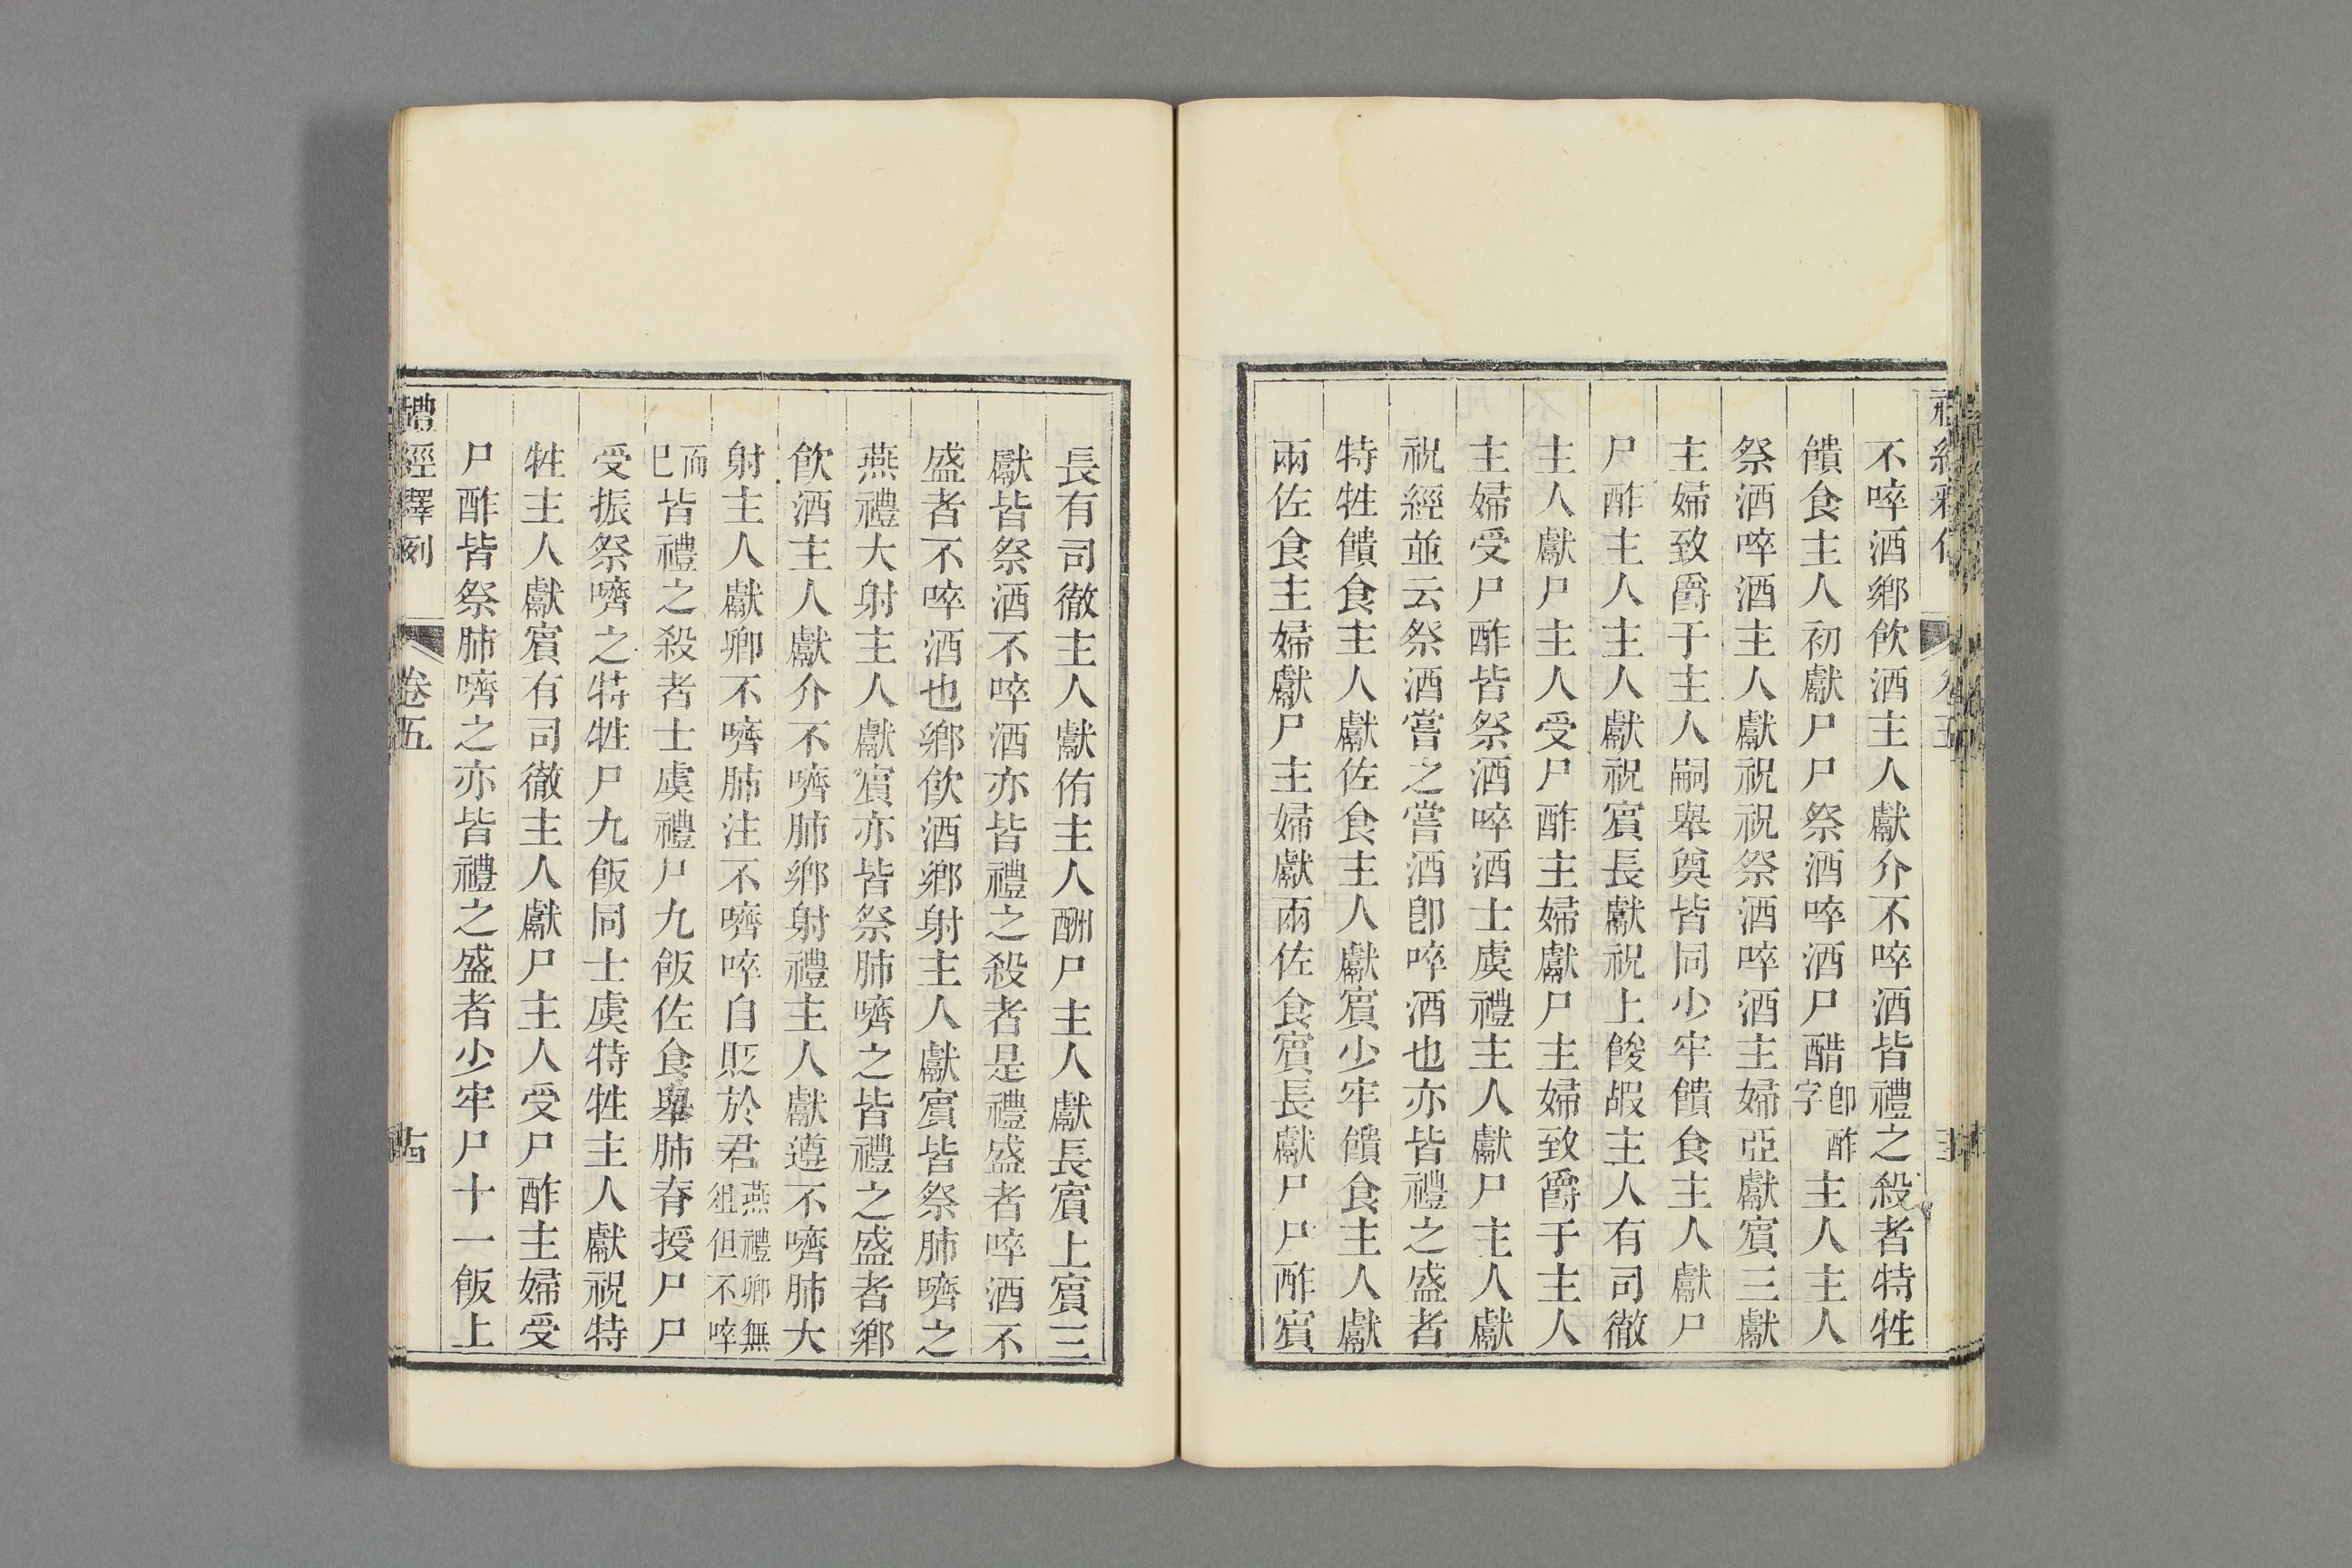 不啐酒鄉飲酒主人獻介不啐酒皆禮之殺者特牲
饋食主人初獻尸尸祭酒啐酒尸醋卽酢字主人主人
祭酒啐酒主人獻祝祝祭酒啐酒主婦亞獻賓三獻
主婦致爵于主人嗣舉奠皆同少牢饋食主人獻尸
尸酢主人主人獻祝賓長獻祝上餕嘏主人有司徹
主人獻尸主人受尸酢主婦獻尸主婦致爵于主人
主婦受尸酢皆祭酒啐酒士虞禮主人獻尸主人獻
祝經並云祭酒嘗之嘗酒卽啐酒也亦皆禮之盛者
特牲饋食主人獻佐食主人獻賓少牢饋食主人獻
兩佐食主婦獻尸主婦獻兩佐食賓長獻尸尸酢賓
長有司徹主人獻侑主人酬尸主人獻長賓上賓三
獻皆祭酒不啐酒亦皆禮之殺者是禮盛者啐酒不
盛者不啐酒也鄉飲酒鄉射主人獻賓皆祭肺嚌之
燕禮大射主人獻賓亦皆祭肺嚌之皆禮之盛者鄉
飲酒主人獻介不嚌肺鄉射禮主人獻遵不嚌肺大
射主人獻卿不嚌肺注不嚌啐自貶於君燕禮卿無俎但不啐
而已皆禮之殺者士虞禮尸九飯佐食舉肺脊授尸尸
受振祭嚌之特牲尸九飯同士虞特牲主人獻祝特
牲主人獻賓有司徹主人獻尸主人受尸酢主婦受
尸酢皆祭肺嚌之亦皆禮之盛者少牢尸十一飯上
禮經釋例 卷五 十四